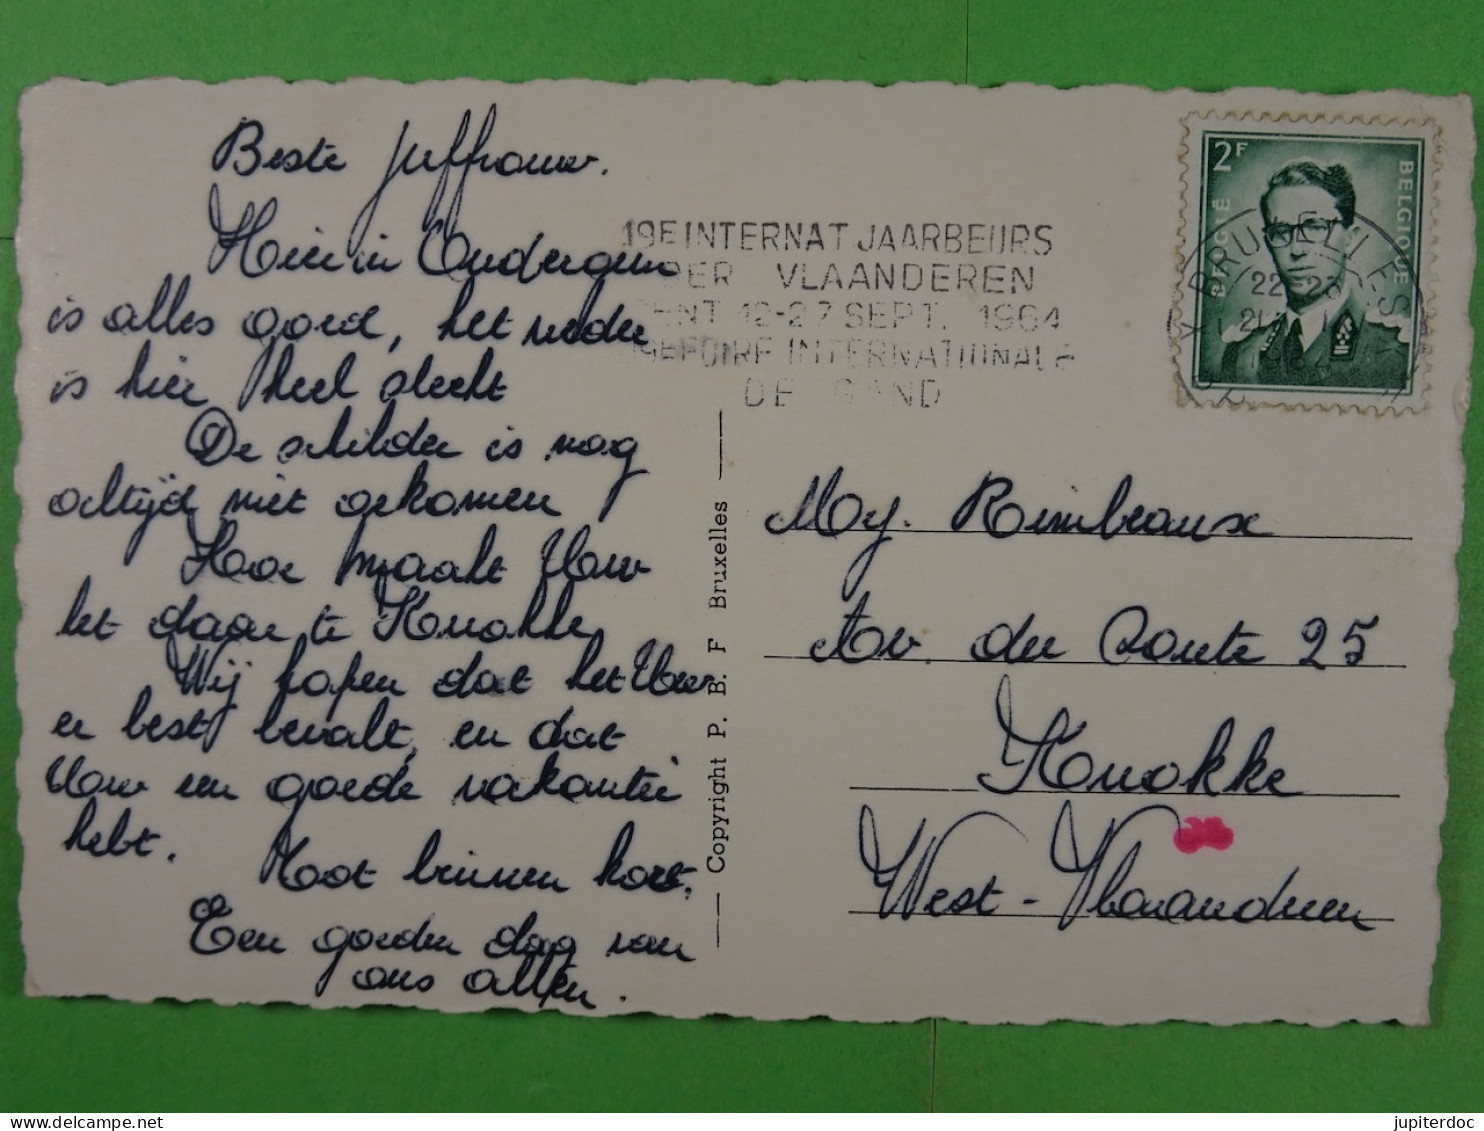 Beste juffrouw.
Hier in Oudergem
is alles goed, het weder
is hier heel slecht
De schilder is nog
altijd niet gekomen
Hoe maakt Uw
het daar te Knokke
Wij hopen dat het Uw
er best bevalt, en dat
Uw een goede vakantie
hebt.
Tot binnen kort.
Een goeden dag van
ons allen.
19E INTERNAT JAARBEURS
DER VLAANDEREN
GENT 12-27 SEPT. 1964
19E FOIRE INTERNATIONALE
DE GAND
2F
BELGIË
BELGIQUE
BRUXELLES
22-23
1964
Copyright P. B. F Bruxelles
My. Rimbeaux
Av. du Comte 25
Knokke
West-Vlaanderen
jupiterdoc
delcampe.net